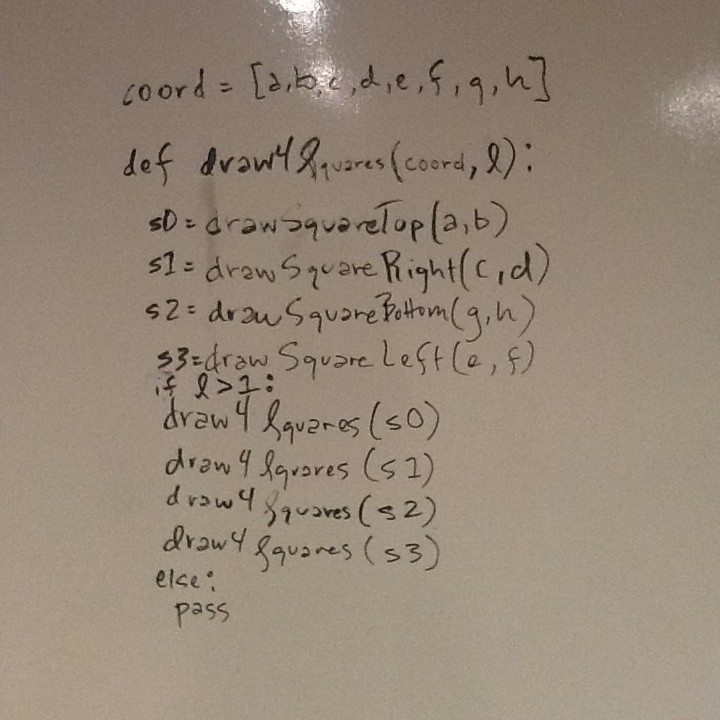 coord = [a,b,c,d,e,f,g,h]
def draw4Squares(coord, l):
s0 = drawSquareTop(a,b)
s1 = drawSquareRight(c,d)
s2 = drawSquareBottom(g,h)
s3 = drawSquareLeft(e,f)
if l>1:
draw4Squares(s0)
draw4Squares(s1)
draw4Squares(s2)
draw4Squares(s3)
else:
pass